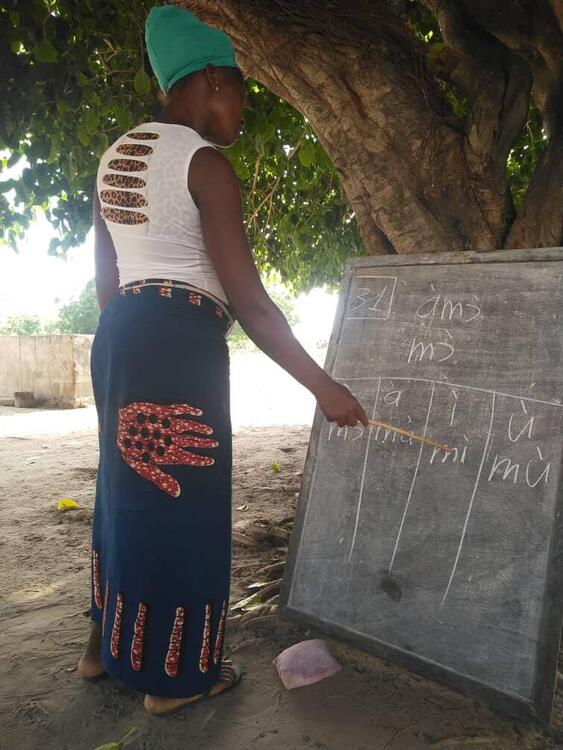 31
àmɔ̀
mɔ̀
à ì ù
mɔ̀ mà mì mù